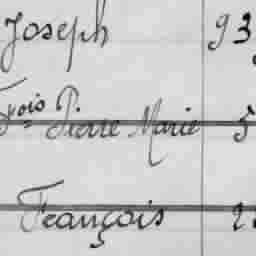 Joseph 93
Fois P. Pierre Marie 5
François 2